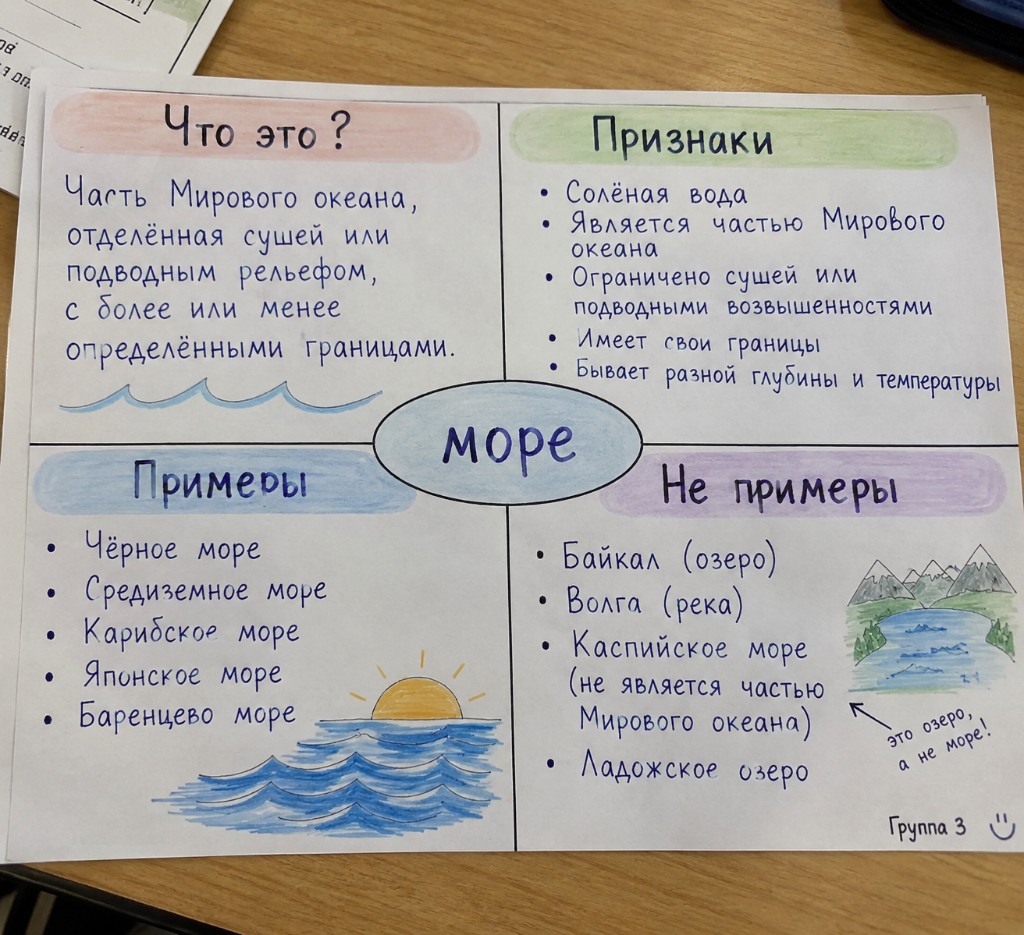 Что это?
Часть Мирового океана,
отделённая сушей или
подводным рельефом,
с более или менее
определёнными границами.
Признаки
• Солёная вода
• Является частью Мирового
океана
• Ограничено сушей или
подводными возвышенностями
• Имеет свои границы
• Бывает разной глубины и температуры
море
Примеры
• Чёрное море
• Средиземное море
• Карибское море
• Японское море
• Баренцево море
Не примеры
• Байкал (озеро)
• Волга (река)
• Каспийское море
(не является частью
Мирового океана)
• Ладожское озеро
это озеро,
а не море!
Группа 3